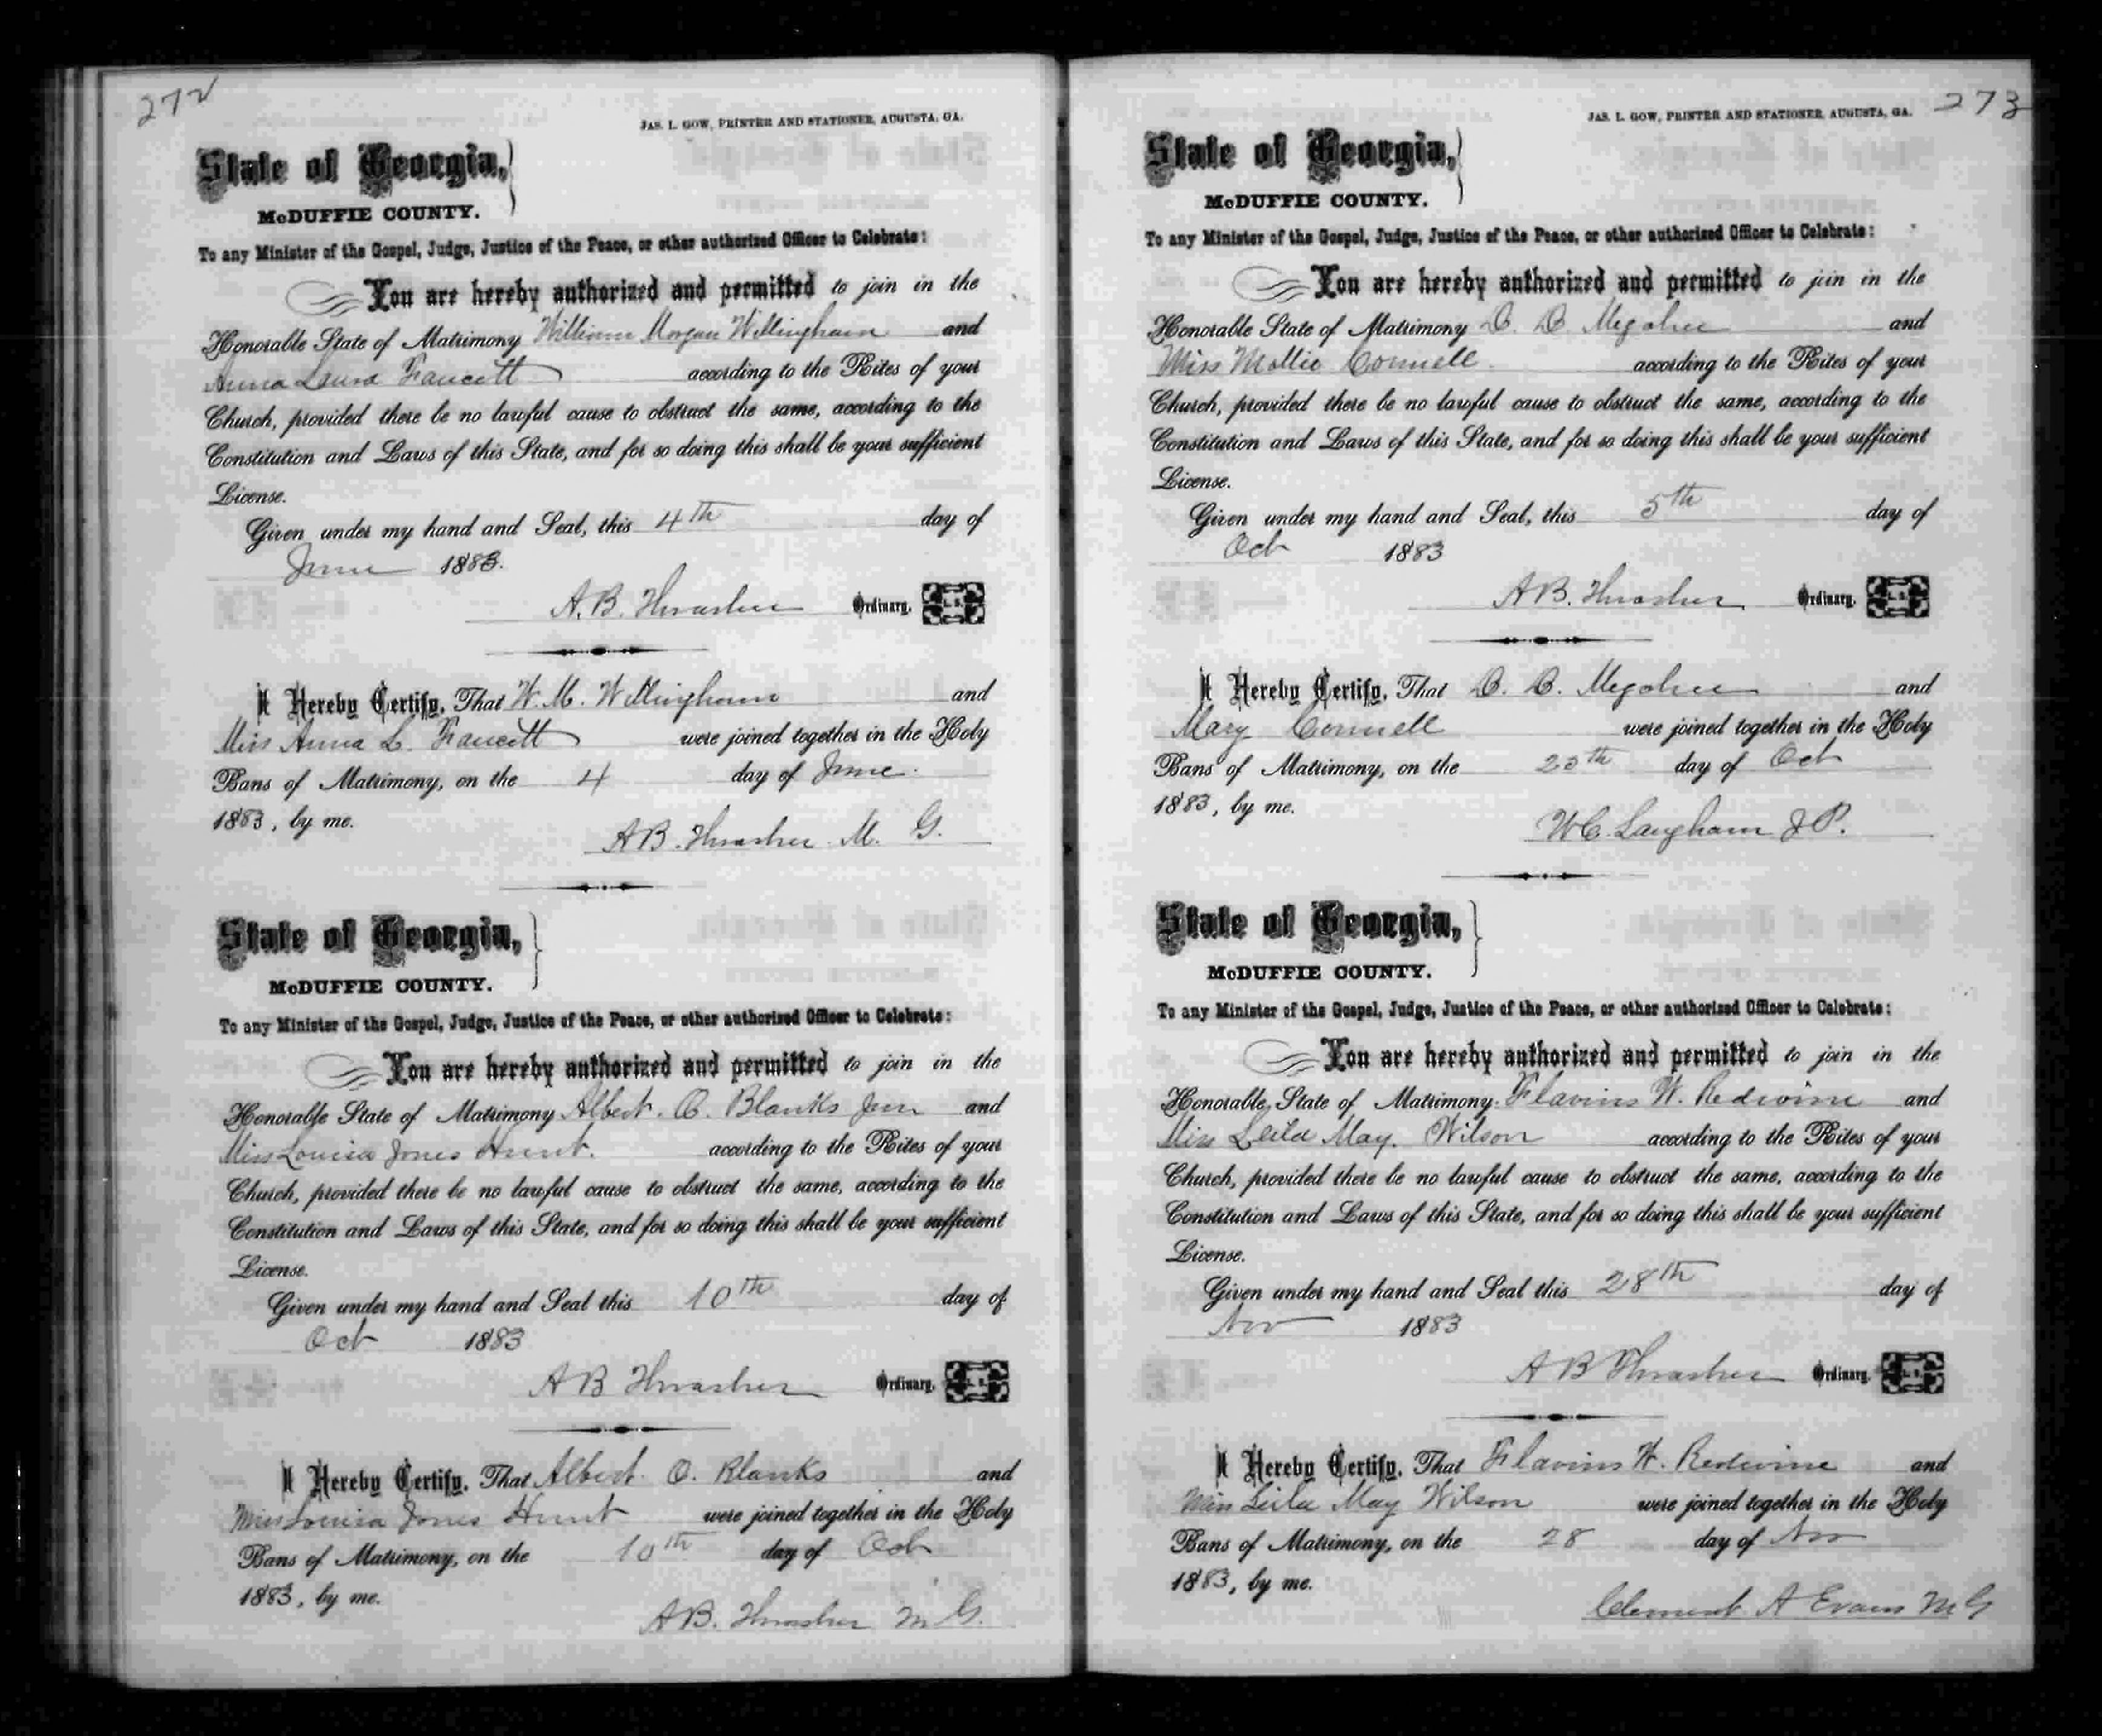 272
JAS. L. GOW, PRINTER AND STATIONER, AUGUSTA, GA.
State of Georgia,
McDUFFIE COUNTY.
To any Minister of the Gospel, Judge, Justice of the Peace, or other authorized Officer to Celebrate:
You are hereby authorized and permitted to join in the
Honorable State of Matrimony William Morgan Willingham and
Anna Laura Faucett according to the Rites of your
Church, provided there be no lawful cause to obstruct the same, according to the
Constitution and Laws of this State, and for so doing this shall be your sufficient
License.
Given under my hand and Seal, this 4th day of
June 1883.
A. B. Thrasher Ordinary. L. S.
I Hereby Certify, That W. M. Willingham and
Miss Anna L. Faucett were joined together in the Holy
Bans of Matrimony, on the 4 day of June.
1883, by me.
A B. Thrasher M. G.
State of Georgia,
McDUFFIE COUNTY.
To any Minister of the Gospel, Judge, Justice of the Peace, or other authorized Officer to Celebrate:
You are hereby authorized and permitted to join in the
Honorable State of Matrimony Albert. O. Blanks Jun and
Miss Louisa Jones Hunt. according to the Rites of your
Church, provided there be no lawful cause to obstruct the same, according to the
Constitution and Laws of this State, and for so doing this shall be your sufficient
License.
Given under my hand and Seal this 10th day of
Oct 1883
A B Thrasher Ordinary. L. S.
I Hereby Certify, That Albert O. Blanks and
Miss Louisa Jones Hunt were joined together in the Holy
Bans of Matrimony, on the 10th day of Oct
1883, by me.
A B. Thrasher M G.
273
JAS. L. GOW, PRINTER AND STATIONER, AUGUSTA, GA.
State of Georgia,
McDUFFIE COUNTY.
To any Minister of the Gospel, Judge, Justice of the Peace, or other authorized Officer to Celebrate:
You are hereby authorized and permitted to join in the
Honorable State of Matrimony B. B. Megahee and
Miss Mollie Connell according to the Rites of your
Church, provided there be no lawful cause to obstruct the same, according to the
Constitution and Laws of this State, and for so doing this shall be your sufficient
License.
Given under my hand and Seal, this 5th day of
Oct 1883
A B. Thrasher Ordinary. L. S.
I Hereby Certify, That B. B. Megahee and
Mary Connell were joined together in the Holy
Bans of Matrimony, on the 25th day of Oct
1883, by me.
W C. Langham J P.
State of Georgia,
McDUFFIE COUNTY.
To any Minister of the Gospel, Judge, Justice of the Peace, or other authorized Officer to Celebrate:
You are hereby authorized and permitted to join in the
Honorable State of Matrimony Flavius W. Redwine and
Miss Leila May. Wilson according to the Rites of your
Church, provided there be no lawful cause to obstruct the same, according to the
Constitution and Laws of this State, and for so doing this shall be your sufficient
License.
Given under my hand and Seal this 28th day of
Nov 1883
A B Thrasher Ordinary. L. S.
I Hereby Certify, That Flavius W. Redwine and
Miss Leila May Wilson were joined together in the Holy
Bans of Matrimony, on the 28 day of Nov
1883, by me.
Clement A Evans M G